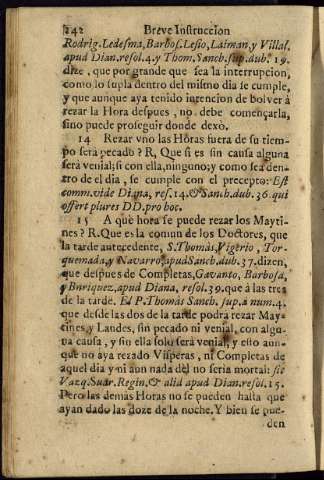 242 Breve Instruccion
Rodrig. Ledesma, Barbos. Lesio, Laiman, y Villal.
apud Dian. resol. 4. y Thom. Sanch. sup. dub. 19.
dize, que por grande que sea la interrupcion,
como lo supla dentro del mismo dia se cumple,
y que aunque aya tenido intencion de bolver à
rezar la Hora despues, no debe començarla,
sino puede proseguir donde dexò.
14 Rezar vno las Horas fuera de su tiem-
po serà pecado? R, Que si es sin causa alguna
serà venial; si con ella, ninguno; y como sea den-
tro de el dia, se cumple con el precepto: Est
comm. vide Diana, res. 14. & Sanch. dub. 36. qui
offert plures DD. pro hoc.
15 A què hora se puede rezar los Mayti-
nes? R. Que es la comun de los Doctores, que
la tarde antecedente, S. Thomàs, Vigerio, Tor-
quemada, y Navarro, apud Sanch. dub. 37. dizen,
que despues de Completas, Gavanto, Barbosa,
y Enriquez. apud Diana, resol. 39. que à las tres
de la tarde. El P. Thomàs Sanch. sup. à num. 4.
que desde las dos de la tarde podrà rezar May-
tines y Laudes, sin pecado ni venial, con algu-
na causa, y sio ella solo serà venial, y esto aun-
que no aya rezado Visperas, ni Completas de
aquel dia y ni aun nada del no seria mortal: sic
Vazq. Suar. Regin. & alid apud Dian. resol. 15.
Pero las demàs Horas no se pueden hasta que
ayan dado las doze de la noche. Y bien se pue-
den